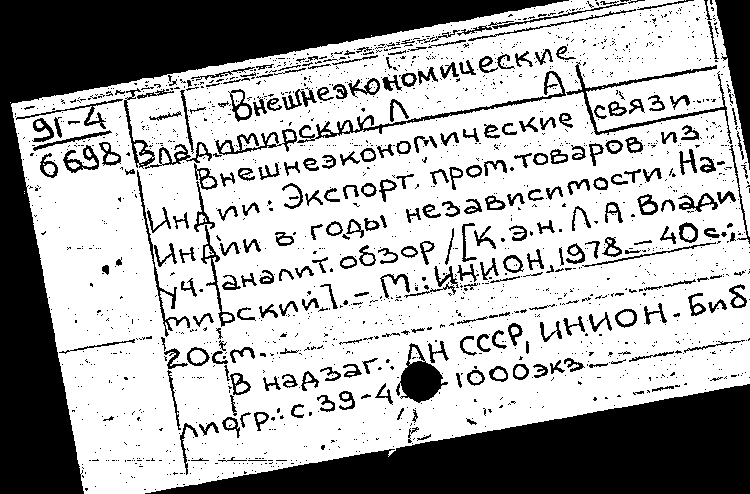 Внешнеэкономические
91-4
6698
Владимирский, Л А
связи
Внешнеэкономические
Индии: Экспорт пром. товаров из
Индии в годы независимости. На-
уч.-аналит. обзор / [К.э.н. Л.А. Влади
мирский]. – М.: ИНИОН, 1978. – 40 с.;
20 см.
В надзаг.: АН СССР, ИНИОН. – Биб
лиогр.: с. 39-4 1000 экз.